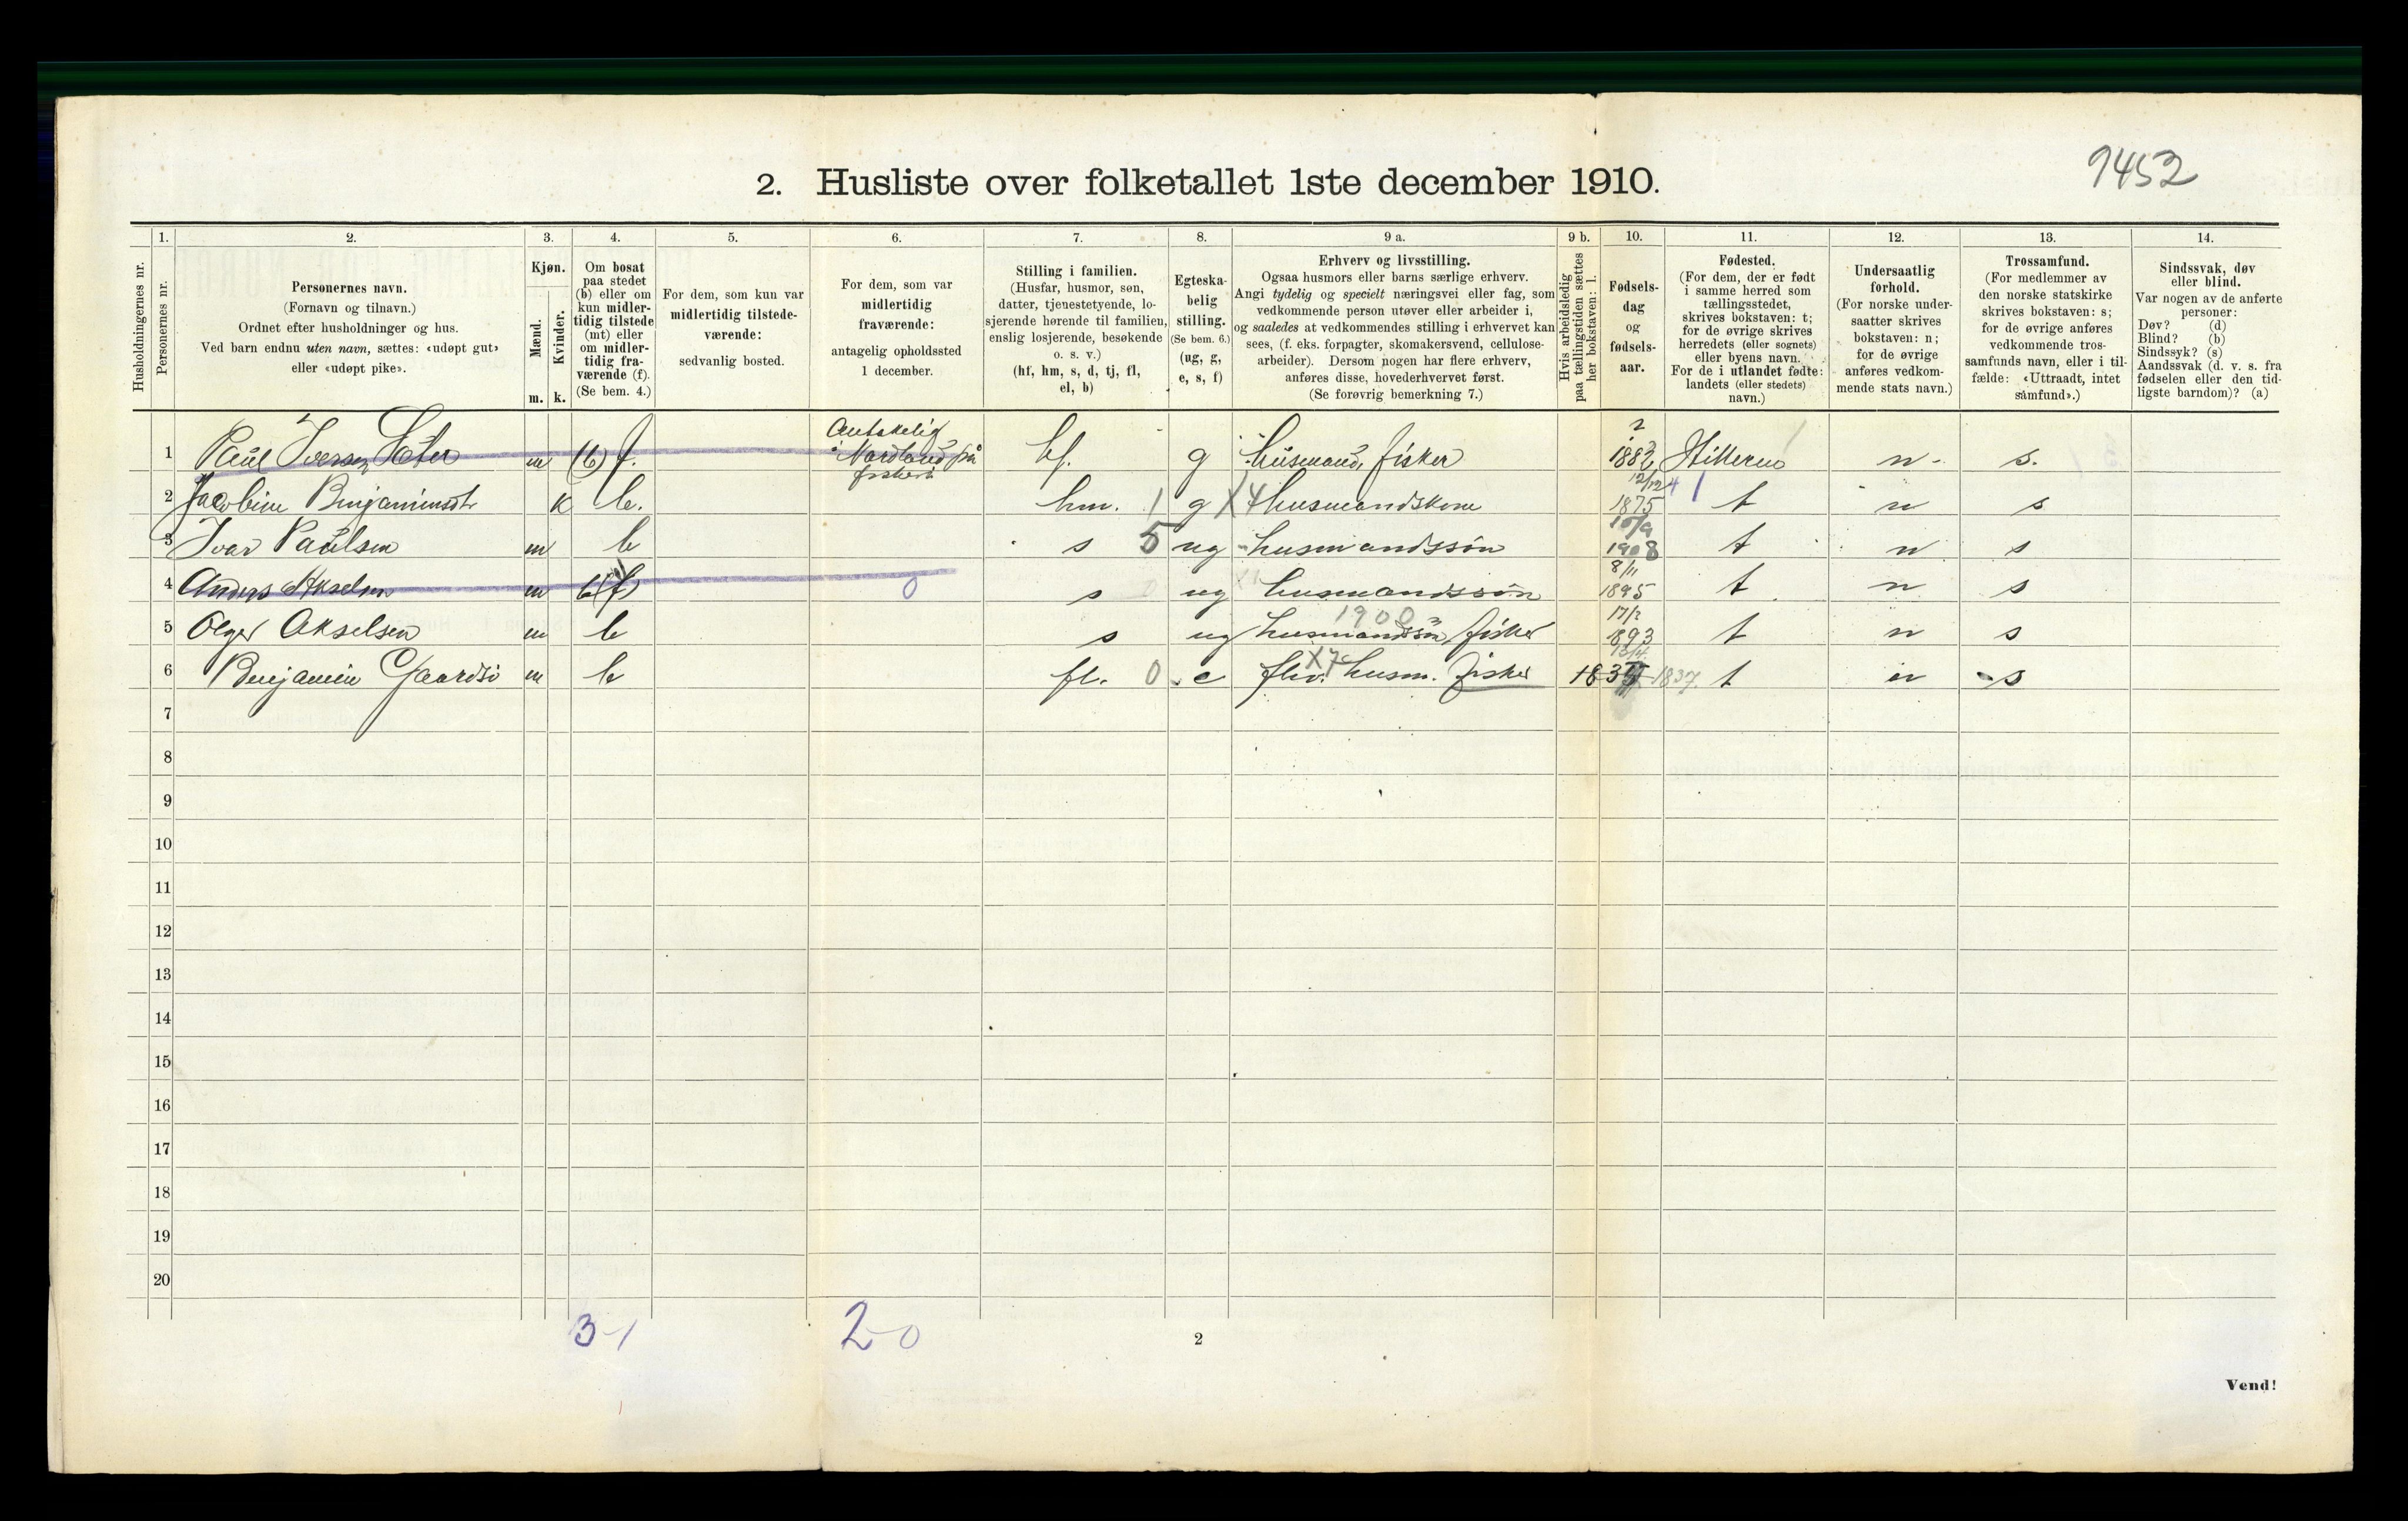 9452
2. Husliste over folketallet 1ste december 1910.
Husholdningernes nr.
1.
Personernes nr.
2.
Personernes navn.
(Fornavn og tilnavn.)
Ordnet efter husholdninger og hus.
Ved barn endnu uten navn, sættes: «udøpt gut»
eller «udøpt pike».
3.
Kjøn.
Mænd.
Kvinder.
m. k.
4.
Om bosat
paa stedet
(b) eller om
kun midler-
tidig tilstede
(mt) eller
om midler-
tidig fra-
værende (f).
(Se bem. 4.)
5.
For dem, som kun var
midlertidig tilstede-
værende:
sedvanlig bosted.
6.
For dem, som var
midlertidig
fraværende:
antagelig opholdssted
1 december.
7.
Stilling i familien.
(Husfar, husmor, søn,
datter, tjenestetyende, lo-
sjerende hørende til familien,
enslig losjerende, besøkende
o. s. v.)
(hf, hm, s, d, tj, fl,
el, b)
8.
Egteska-
belig
stilling.
(Se bem. 6.)
(ug, g,
e, s, f)
9 a.
Erhverv og livsstilling.
Ogsaa husmors eller barns særlige erhverv.
Angi tydelig og specielt næringsvei eller fag, som
vedkommende person utøver eller arbeider i,
og saaledes at vedkommendes stilling i erhvervet kan
sees, (f. eks. forpagter, skomakersvend, cellulose-
arbeider). Dersom nogen har flere erhverv,
anføres disse, hovederhvervet først.
(Se forøvrig bemerkning 7.)
9 b.
Hvis arbeidsledig
paa tællingstiden sættes
her bokstaven: l.
10.
Fødsels-
dag
og
fødsels-
aar.
11.
Fødested.
(For dem, der er født
i samme herred som
tællingsstedet,
skrives bokstaven: t;
for de øvrige skrives
herredets (eller sognets)
eller byens navn.
For de i utlandet fødte:
landets (eller stedets)
navn.)
12.
Undersaatlig
forhold.
(For norske under-
saatter skrives
bokstaven: n;
for de øvrige
anføres vedkom-
mende stats navn.)
13.
Trossamfund.
(For medlemmer av
den norske statskirke
skrives bokstaven: s;
for de øvrige anføres
vedkommende tros-
samfunds navn, eller i til-
fælde: «Uttraadt, intet
samfund».)
14.
Sindssvak, døv
eller blind.
Var nogen av de anførte
personer:
Døv? (d)
Blind? (b)
Sindssyk? (s)
Aandssvak (d. v. s. fra
fødselen eller den tid-
ligste barndom)? (a)
1 Paul Iversen Sæter m (b) f. Antakelig i Nordland på fiskeri hf. g husmand, fisker 1882 Hitteren n s.
2 Jacobine Benjaminsdtr k b. hm. 1 g X4 husmandskone 12/12 1875 t n s
3 Ivar Paulsen m b s 5 ug husmandssøn 10/9 1908 t n s
4 Anders Akselsen m b(f) 0 s ug husmandssøn 8/11 1895 t n s
5 Olger Akselsen m b s ug husmandssøn fisker 1900 17/2 1893 t n s
6 Benjamin Gaardsø m b fl. 0 e fhv. husm. fisker X7 13/4 1837 t n s
7
8
9
10
11
12
13
14
15
16
17
18
19
20
3-1
2-0
2
Vend!